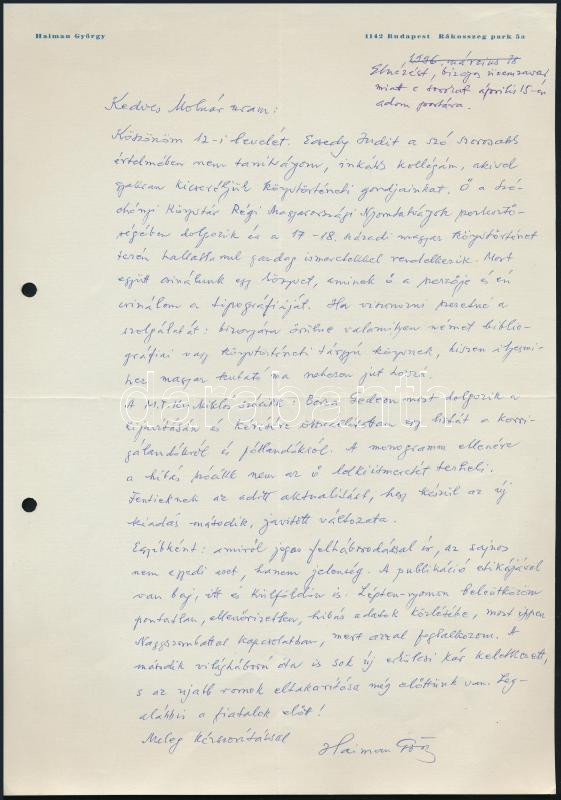 Haiman György
1142 Budapest Rákosszeg park 5a
1996. március 18
Elnézést, bizonyos üzemzavar
miatt c sorokat április 15-én
adom postára.
Kedves Molnár uram:
Köszönöm 12-i levelét. Ecsedy Judit a szó szorosabb
értelmében nem tanítványom, inkább kollégám, akivel
gyakran kicseréljük könyvtörténeti gondjainkat. Ő a Szé-
chényi Könyvtár Régi Magyarországi Nyomtatványok szerkesztő-
ségében dolgozik és a 17-18. századi magyar könyvtörténet
terén hallatlanul gazdag ismeretekkel rendelkezik. Most
együtt csinálunk egy könyvet, aminek ő a szerzője és én
csinálom a tipográfiáját. Ha viszonozni szeretné a
szolgálatát: bizonyára örülne valamilyen német biblio-
gráfiai vagy könyvtörténeti tárgyú könyvnek, hiszen ilyesmi-
hez magyar kutató ma nehezen jut hozzá.
A M.T. Kis Miklós : Borsa Gedeon most dolgozik a
kijavításán és kérésére összeállítottam egy listát a korri-
gálandókról és pótlandókról. A monogramm ellenére
a hibás nem az ő lelkiismeretét terheli.
Fentieknek az adott aktualitást, hogy készül az új
kiadás második, javított változata.
Egyébként: amiről jogos felháborodással ír, az sajnos
nem egyedi eset, hanem jelenség. A publikáció etikájával
van baj, itt és külföldön is. Lépten-nyomon beleütközöm
pontatlan, ellenőrizetlen, hibás adatok közlésébe, most éppen
Nagyszombattal kapcsolatban, mert azzal foglalkozom. A
második világháború óta is sok új erkölcsi kár keletkezett,
s az újabb romok eltakarítása még előttünk van. Leg-
alábbis a fiatalok előtt!
Meleg kézszorítással
Haiman György
darabanth